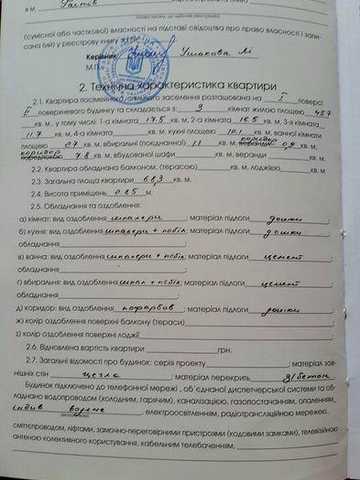 в м.
(сумісної або часткової) власності на підставі свідоцтва про право власності і запи-
сана (ий) у реєстрову книгу
Керівник Ушакова
М.П.
2. Технічна характеристика квартири
2.1. Квартира посімейного спільного заселення розташована на I поверсі
поверхового будинку та складається з 3 кімнат жилою площею 45,7
кв. м, у тому числі: 1-а кімната 17,5 кв. м, 2-а кімната 16,5 кв. м, 3-я кімната
11,7 кв. м, 4-а кімната кв. м; кухні площею 10,1 кв. м, ванної кімнати
площею кв. м, вбиральні (поєднаної) 1,1 кв. м, коридор 0,9 кв. м,
коридор 7,8 кв. м, вбудованої шафи кв. м, веранди кв. м.
2.2. Квартира обладнана балконом, (терасою) кв. м, лоджією, кв. м
2.3. Загальна площа квартири кв. м.
2.4. Висота приміщень м.
2.5. Обладнання та оздоблення:
а) кімнат: вид оздоблення шпалери; матеріал підлоги дошки;
б) кухня: вид оздоблення шпалери + побіл; матеріал підлоги дошки;
обладнання
в) ванна: вид оздоблення шпалери + побіл; матеріал підлоги цемент;
обладнання
г) вбиральня: вид оздоблення шпал + побіл; матеріал підлоги цемент;
обладнання
д) коридор: вид оздоблення пофарбов; матеріал підлоги дошки
ж) колір оздоблення поверхні балкону (тераси)
з) колір оздоблення поверхні лоджії
2.6. Відновлена вартість квартири грн.
2.7. Загальні відомості про будинок: серія проекту; матеріал зов-
нішніх стін цегла; матеріал перекрить з/бетон
Будинок підключено до телефонної мережі, об'єднаної диспетчерської системи та об-
ладнано водопроводом (холодним, гарячим), каналізацією, газопостачанням, опаленням,
індив, електроосвітленням, радіотрансляційною мережею,
сміттєпроводом, ліфтами, замочно-переговірними пристроями (кодовими замками), телевізійною
антеною колективного користування, кабельним телебаченням,